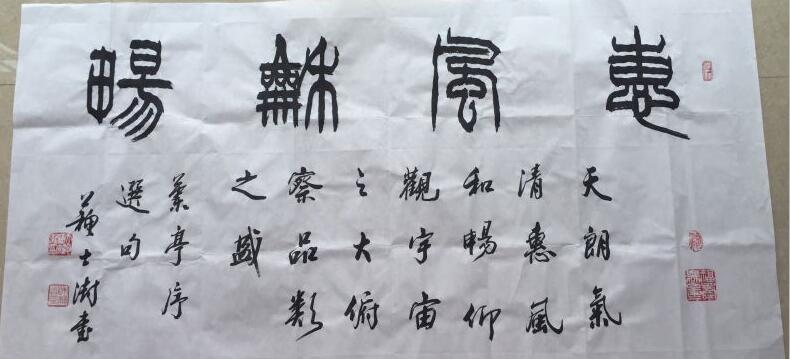 惠風龢畼
天朗氣
清惠風
和暢仰
觀宇宙
之大俯
察品類
之盛
蘭亭序
選句
蘇士澍書